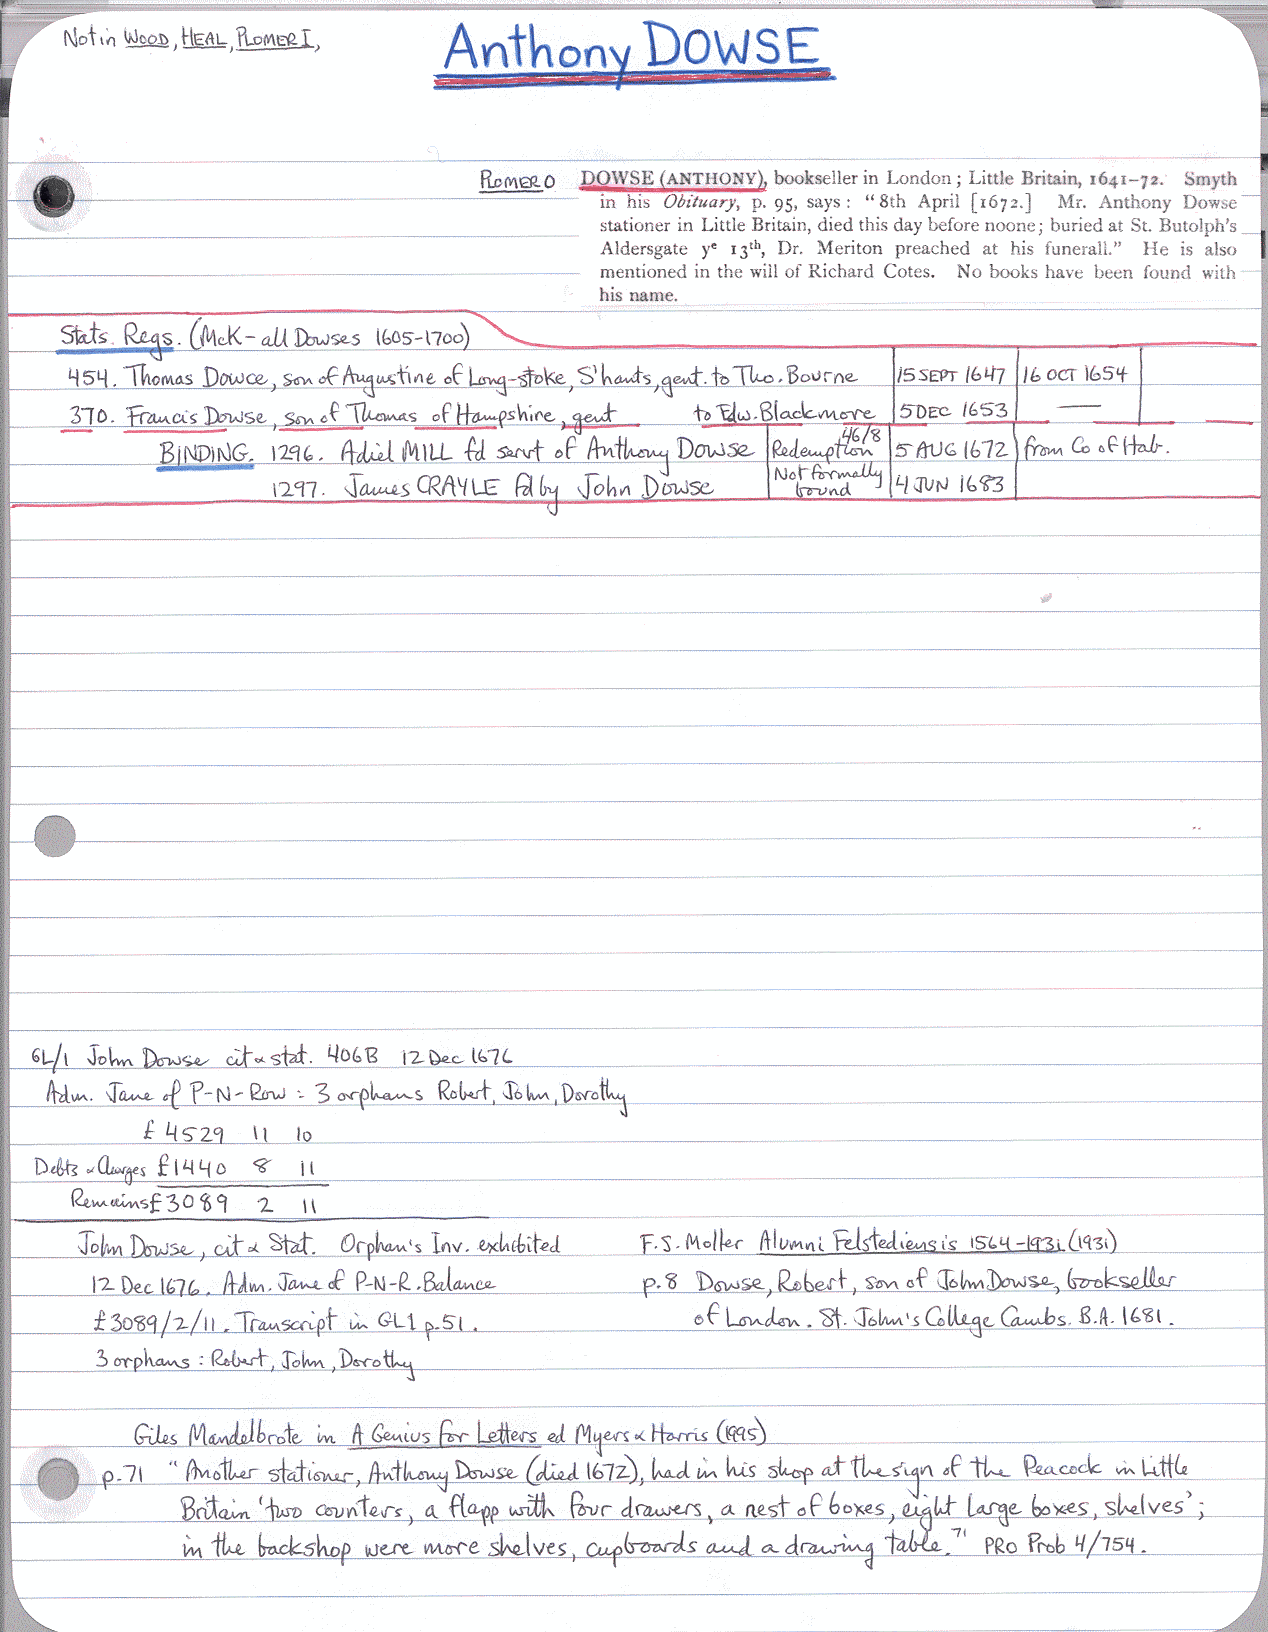 Not in WOOD, HEAL, PLOMER I,
Anthony DOWSE
PLOMER O DOWSE (ANTHONY), bookseller in London; Little Britain, 1641–72. Smyth
in his Obituary, p. 95, says: "8th April [1672.] Mr. Anthony Dowse
stationer in Little Britain, died this day before noone; buried at St. Butolph's
Aldersgate yᵉ 13th, Dr. Meriton preached at his funerall." He is also
mentioned in the will of Richard Cotes. No books have been found with
his name.
Stats. Regs. (McK – all Dowses 1605-1700)
454. Thomas Dowce, son of Augustine of Long-stoke, S'hants, gent. to Tho. Bourne 15 SEPT 1647 16 OCT 1654
370. Francis Dowse, son of Thomas of Hampshire, gent to Edw. Blackmore 5 DEC 1653 —
BINDING. 1296. Adiel MILL fd servt of Anthony Dowse Redemption 46/8 5 AUG 1672 from Co of Hab.
1297. James CRAYLE fd by John Dowse Not formally bound 4 JUN 1683
GL/1 John Dowse cit & stat. 406B 12 Dec 1676
Adm. Jane of P-N-Row = 3 orphans Robert, John, Dorothy
£ 4529 11 10
Debts & Charges £1440 8 11
Remains £3089 2 11
John Dowse, cit & Stat. Orphan's Inv. exhibited
12 Dec 1676. Adm. Jane of P-N-R. Balance
£3089/2/11. Transcript in GL1 p.51.
3 orphans: Robert, John, Dorothy
F.S. Moller Alumni Felstedienses 1564-1931 (1931)
p.8 Dowse, Robert, son of John Dowse, bookseller
of London. St. John's College Cambs. B.A. 1681.
Giles Mandelbrote in A Genius for Letters ed Myers & Harris (1995)
p.71 "Another stationer, Anthony Dowse (died 1672), had in his shop at the sign of the Peacock in Little
Britain 'two counters, a flapp with four drawers, a nest of boxes, eight large boxes, shelves';
in the backshop were more shelves, cupboards and a drawing table."⁷¹ PRO Prob 4/754.